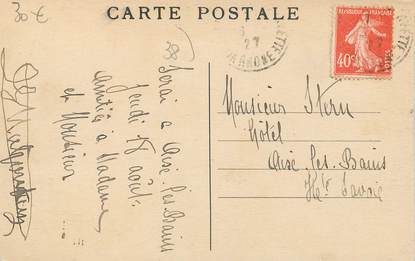 30 €
CARTE POSTALE
38
Serai à Aix les Bains
Jeudi 18 août.
Amitiés à Madame
et Monsieur
Monsieur Stern
Hôtel
Aix-les-Bains
Hte Savoie
REPUBLIQUE FRANÇAISE
40c
POSTES
27